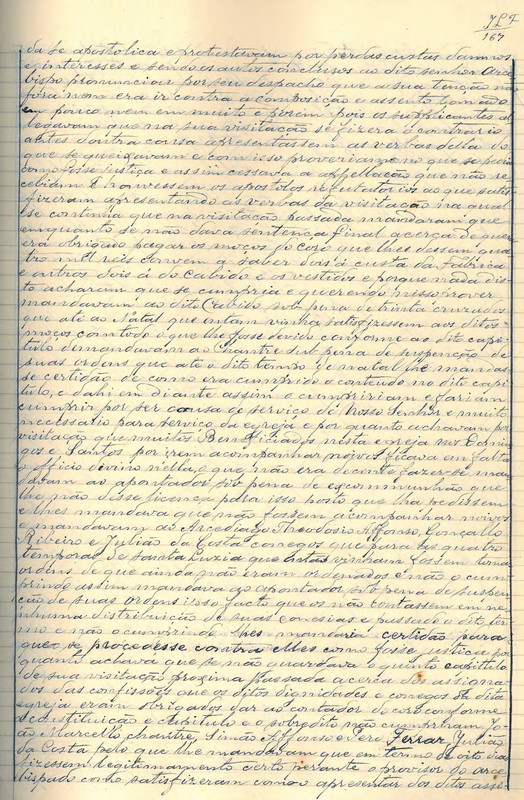 J L 4
167
da sé apostolica e protestavam por perdas custas damnos
e interesses e sendo os autos conclusos ao dito senhor Arce
bispo pronunciou por seu despacho que a sua tenção não
fora nem era ir contra a composição e assento tomado
em pouco nem em muito e porem pois os supplicantes al
legavam que na sua visitação se fizera o contrario
antes doutra cousa apresentassem as verbas della do
que se queixavam e com isso proveriam no que se pedia
como fosse justiça e assim cessava a appellação que não re
cebiam e houvessem os apostolos refutatorios ao que satis
fizeram apresentando as verbas da visitação na qual
se continha que na visitação passada mandaram que
emquanto se não dava sentença final acerca de quem
era obrigado pagar os moços do coro que lhes dessem qua
tro mil reis convem a saber dois á custa da fabrica
e outros dois á do Cabido e os vestidos e porque nada dis
to acharam que se cumpria e querendo nisso prover
mandavam ao dito Cabido sob pena de trinta cruzados
que até ao Natal que entam vinha satisfizessem aos ditos
moços com todo o que lhe fosse devido conforme ao dito capi
tulo e mandavam ao Chantre sub pena de suspenção de
suas ordens que até o dito tempo de natal lhe mandas
se certidão de como era cumprido o conteudo no dito capi
tulo, e dahi em diante assim o cumpririam e fariam
cumprir por ser cousa de serviço de Nosso Senhor e muito
necessario para serviço da egreja e por quanto achavam por
visitação que muitos Beneficiados nesta egreja nos Domin
gos e Santos por irem acompanhar noivos ficava em falta
o officio divino nella, o que não era decente fazer-se man
davam ao apontador sob pena de excommunhão que
lhe não desse licença para isso posto que lha pedissem
e lhes mandava que não fossem acompanhar noivos
e mandavam ao Arcediago Theodosio Affonso, Gonçallo
Ribeiro e Julião da Costa conegos que para as quatro
temporas de Santa Luzia que então vinham fossem tomar
ordens de que ainda não eram ordenados e não o cum
prindo assim mandava ao apontador sub pena de suspen
ção de suas ordens ipso facto que os não contassem em ne
nhuma distribuição de suas conesias e passado o dito ter
mo e não o cumprindo lhes mandaria certidão para
que se procedesse contra elles como fosse justiça por
quanto achava que se não guardava o quinto capitulo
de sua visitação proxima passada acerca dos assigna
dos das confissões que os ditos dignidades e conegos da dita
egreja eram obrigados dar ao contador do coro conforme
a Constituição e Capitulo e o sobredito não cumpriram Jo
ão Marcello chantre, Simão Affonso e Pero Ferraz, Julião
da Costa pelo que lhe mandavam que em termo de oito dias
fizessem legitimamente certo perante o provisor do arce
bispado como satisfizeram com o apresentar dos ditos assi